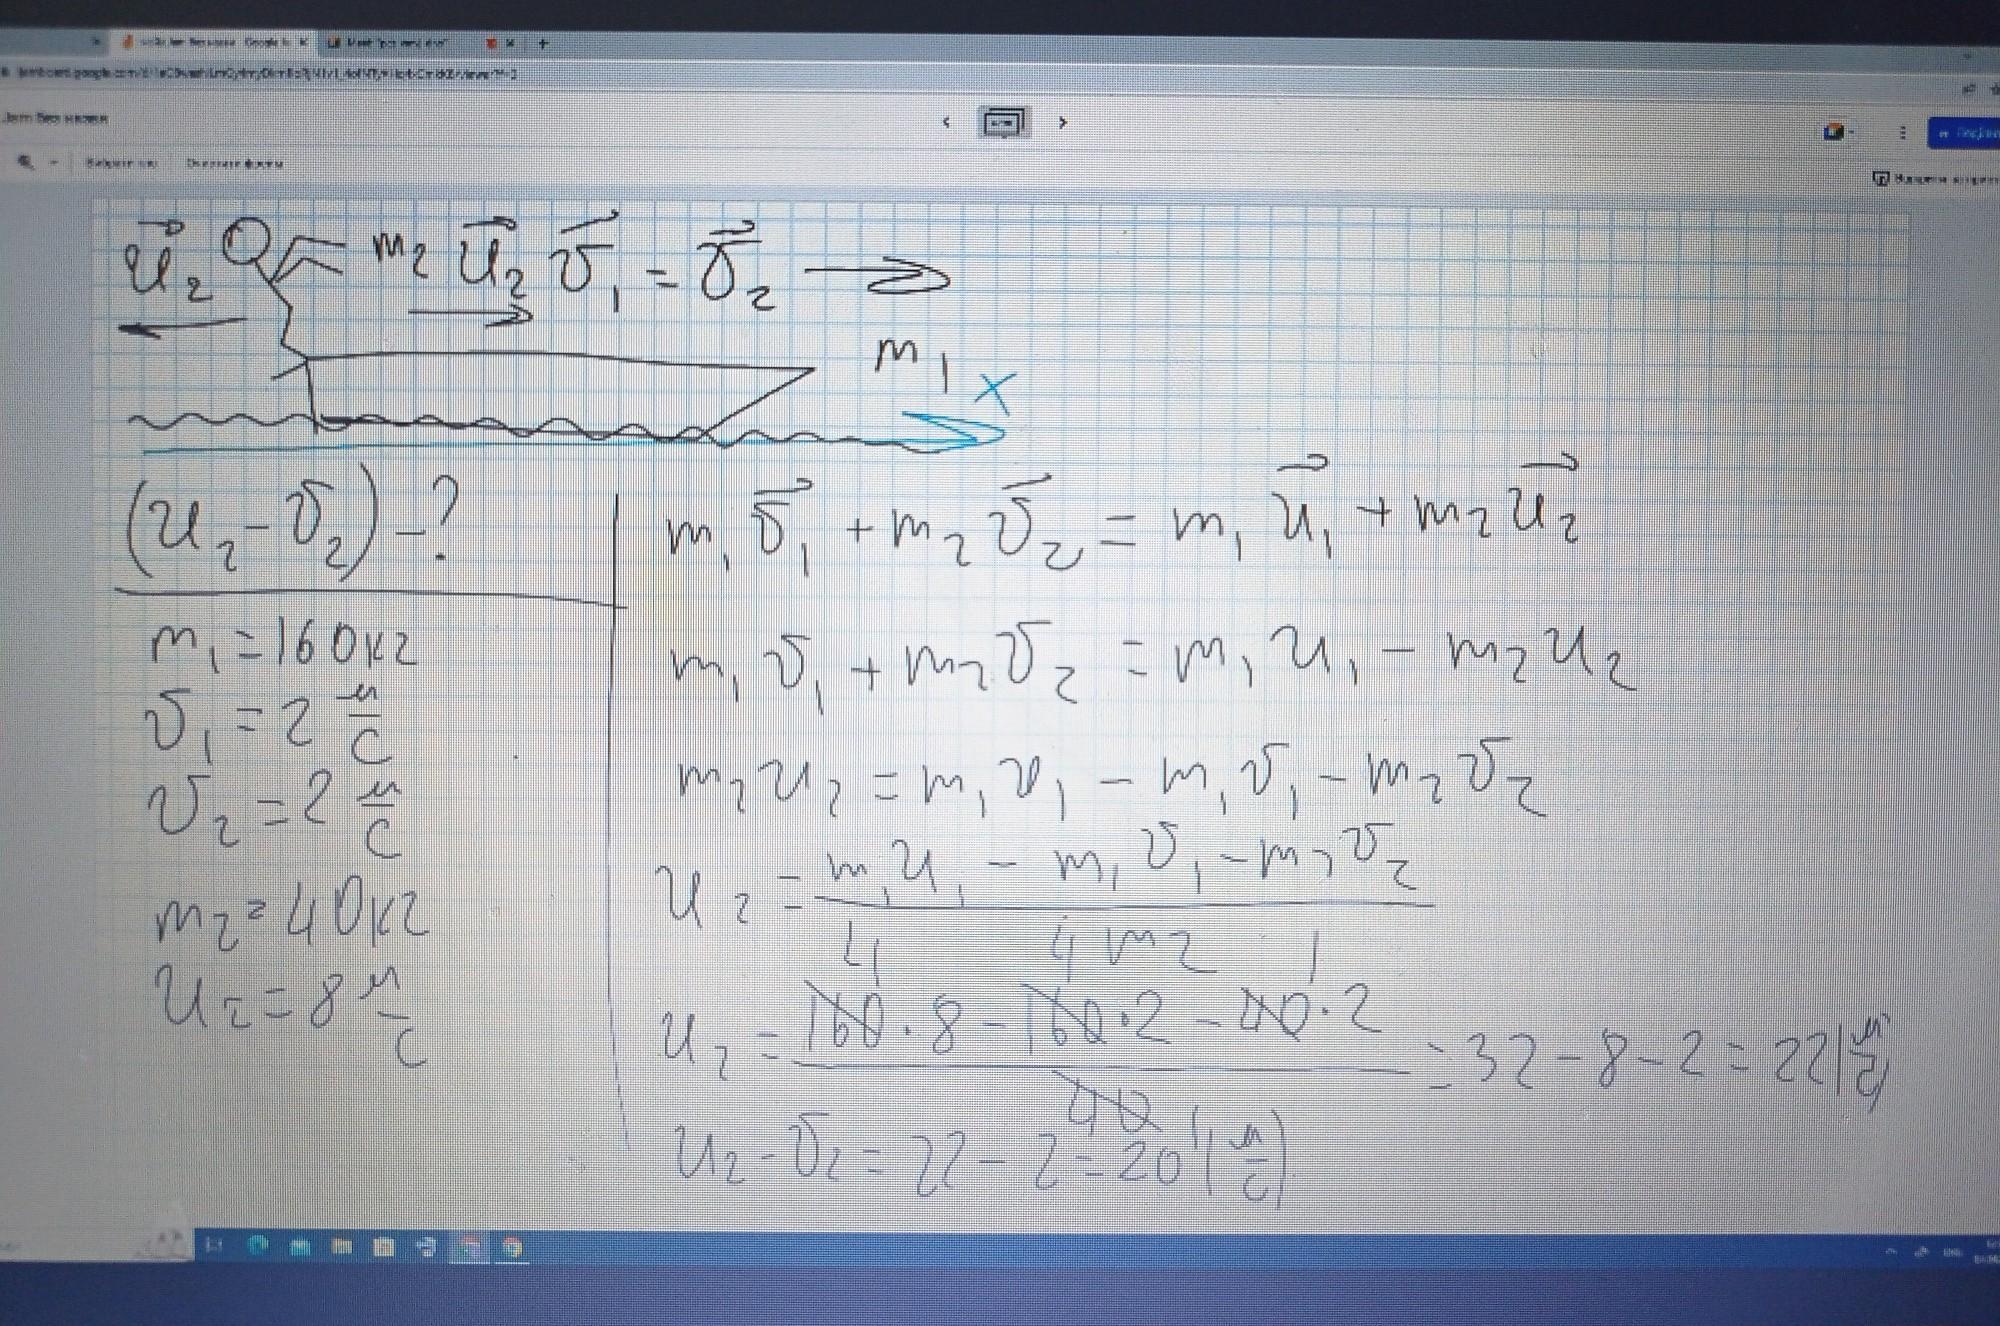 u⃗₂ m₂ u⃗₂ v⃗₁ = v⃗₂
m₁
x
(u₂ - v₂) - ?
m₁ = 160 кг
v₁ = 2 м/с
v₂ = 2 м/с
m₂ = 40 кг
u₂ = 8 м/с
m₁v⃗₁ + m₂v⃗₂ = m₁u⃗₁ + m₂u⃗₂
m₁v₁ + m₂v₂ = m₁u₁ - m₂u₂
m₂u₂ = m₁u₁ - m₁v₁ - m₂v₂
u₂ = (m₁u₁ - m₁v₁ - m₂v₂) / m₂
4 4 1
u₂ = (160·8 - 160·2 - 40·2) / 40 = 32 - 8 - 2 = 22 (м/с)
1
u₂ - v₂ = 22 - 2 = 20 (м/с)